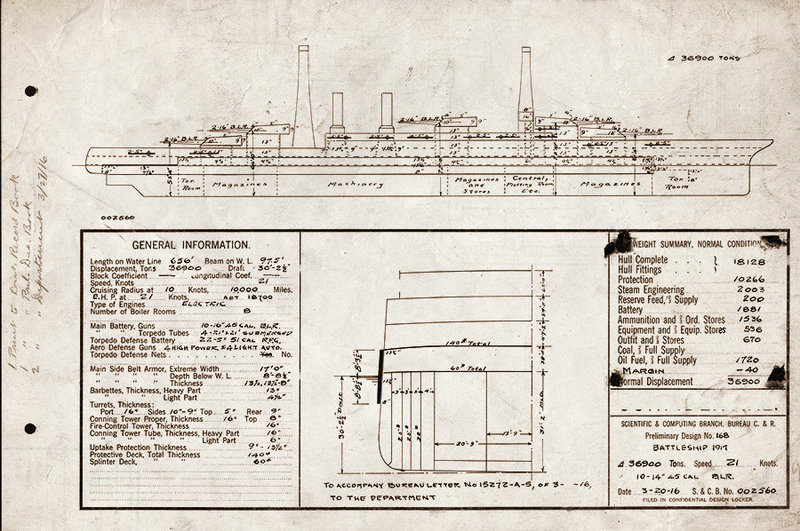 Δ 36900 TONS
2-16" BLR.
2-16" BLR.
2-16" BLR
2-16" BLR.
2-16" BLR
Tor. Room
Magazines
Machinery
Magazines and Stores
Central, Plotting Room Etc.
Magazines
Tor. Room
002560
1 Print to Prel. Record Book
1 " " Prel. Dire. Book
2 " " Department 3/27/16
GENERAL INFORMATION.
Length on Water Line 656' Beam on W. L. 97.5'
Displacement, Tons 36900 Draft 30'-2½"
Block Coefficient — Longitudinal Coef. —
Speed, Knots 21
Cruising Radius at 10 Knots, 10,000 Miles.
E.H.P. at 21 Knots, ABT 18700
Type of Engines ELECTRIC
Number of Boiler Rooms 8
Main Battery, Guns 10-16" 45 CAL BLR.
" " Torpedo Tubes 4-21" SUBMERGED
Torpedo Defense Battery 22-5" 51 CAL R.F.G.
Aero Defense Guns 4 HIGH POWER, & 4 LIGHT AUTO.
Torpedo Defense Nets Yes. No.
Main Side Belt Armor, Extreme Width 17'0"
" " " " Depth Below W. L. 8'-8½"
" " " " Thickness 13½, 13½-8"
Barbettes, Thickness, Heavy Part 13"
" " Light Part 4½"
Turrets, Thickness:
Port 16" Sides 10"-9" Top 5" Rear 9"
Conning Tower Proper, Thickness 16" Top 8"
Fire-Control Tower, Thickness 16"
Conning Tower Tube, Thickness, Heavy Part 16"
" " " " Light Part 6"
Uptake Protection Thickness 9"-13½"
Protective Deck, Total Thickness 140#
Splinter Deck, " 60#
140# Total
60# Total
8'-8½"
8'-3½"
30'-2½"
20'-9"
13'-9"
TO ACCOMPANY BUREAU LETTER No 15272-A-5, OF 3- -16,
TO THE DEPARTMENT
WEIGHT SUMMARY, NORMAL CONDITION
Hull Complete 18128
Hull Fittings
Protection 10266
Steam Engineering 2003
Reserve Feed, ⅔ Supply 200
Battery 1881
Ammunition and ⅔ Ord. Stores 1536
Equipment and ⅔ Equip. Stores 536
Outfit and ⅔ Stores 670
Coal, ⅔ Full Supply
Oil Fuel, ⅔ Full Supply 1720
MARGIN -40
Normal Displacement 36900
SCIENTIFIC & COMPUTING BRANCH, BUREAU C. & R.
Preliminary Design No. 168
BATTLESHIP 1917
Δ 36900 Tons. Speed 21 Knots.
10-14" 45 CAL BLR.
Date 3-20-16 S. & C. B. No. 002560
FILED IN CONFIDENTIAL DESIGN LOCKER.